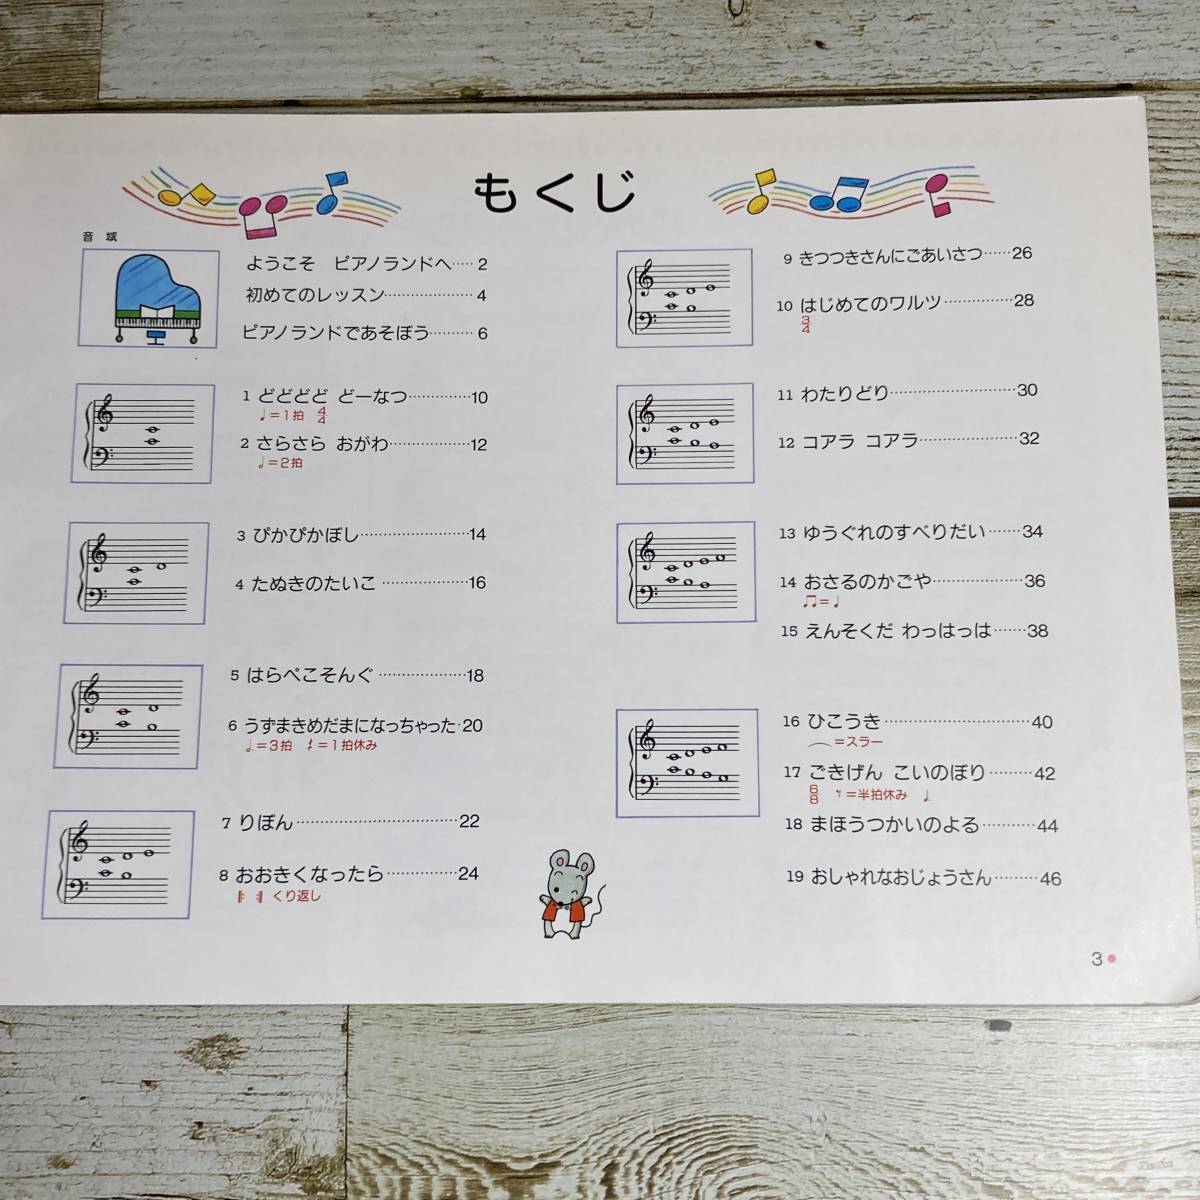 もくじ
音域
ようこそ ピアノランドへ……2
初めてのレッスン…………………4
ピアノランドであそぼう………6
1 どどどど どーなつ…………10
♩=1拍 4/4
2 さらさら おがわ………………12
𝅗𝅥=2拍
3 ぴかぴかぼし……………………14
4 たぬきのたいこ…………………16
5 はらぺこそんぐ…………………18
6 うずまきめだまになっちゃった·20
𝅗𝅥.=3拍 𝄽=1拍休み
7 りぼん……………………………22
8 おおきくなったら……………24
𝄆 𝄇 くり返し
9 きつつきさんにごあいさつ……26
10 はじめてのワルツ……………28
3/4
11 わたりどり…………………………30
12 コアラ コアラ…………………32
13 ゆうぐれのすべりだい……34
14 おさるのかごや…………………36
♫=♩
15 えんそくだ わっはっは……38
16 ひこうき……………………………40
⌒=スラー
17 ごきげん こいのぼり………42
6/8 𝄾=半拍休み ♩
18 まほうつかいのよる…………44
19 おしゃれなおじょうさん………46
3